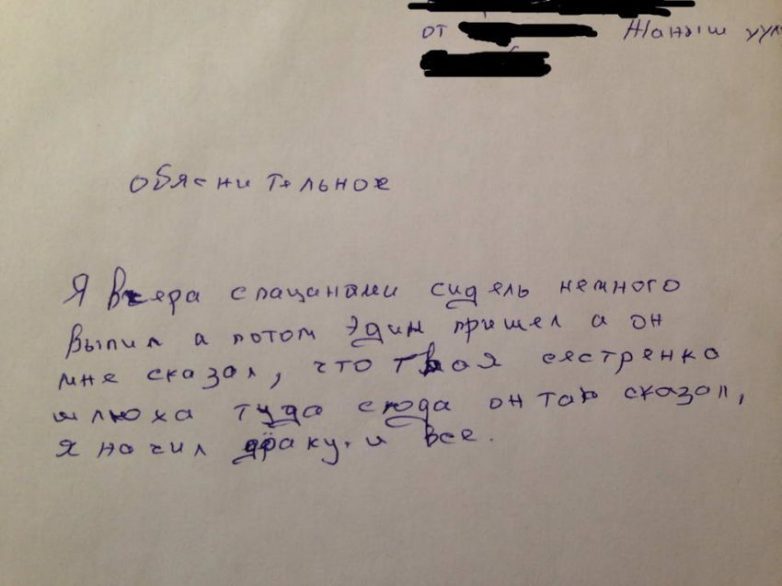 от Жаныш уул
обяснительное
Я вчера спацанами сидель немного
выпил а потом Эдин пришел а он
мне сказал, что твоя сестренка
шлюха туда сюда он так сказал,
я начил драку. и все.